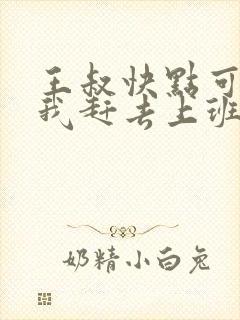 王叔快點可
我赶去上班
奶精小白兔